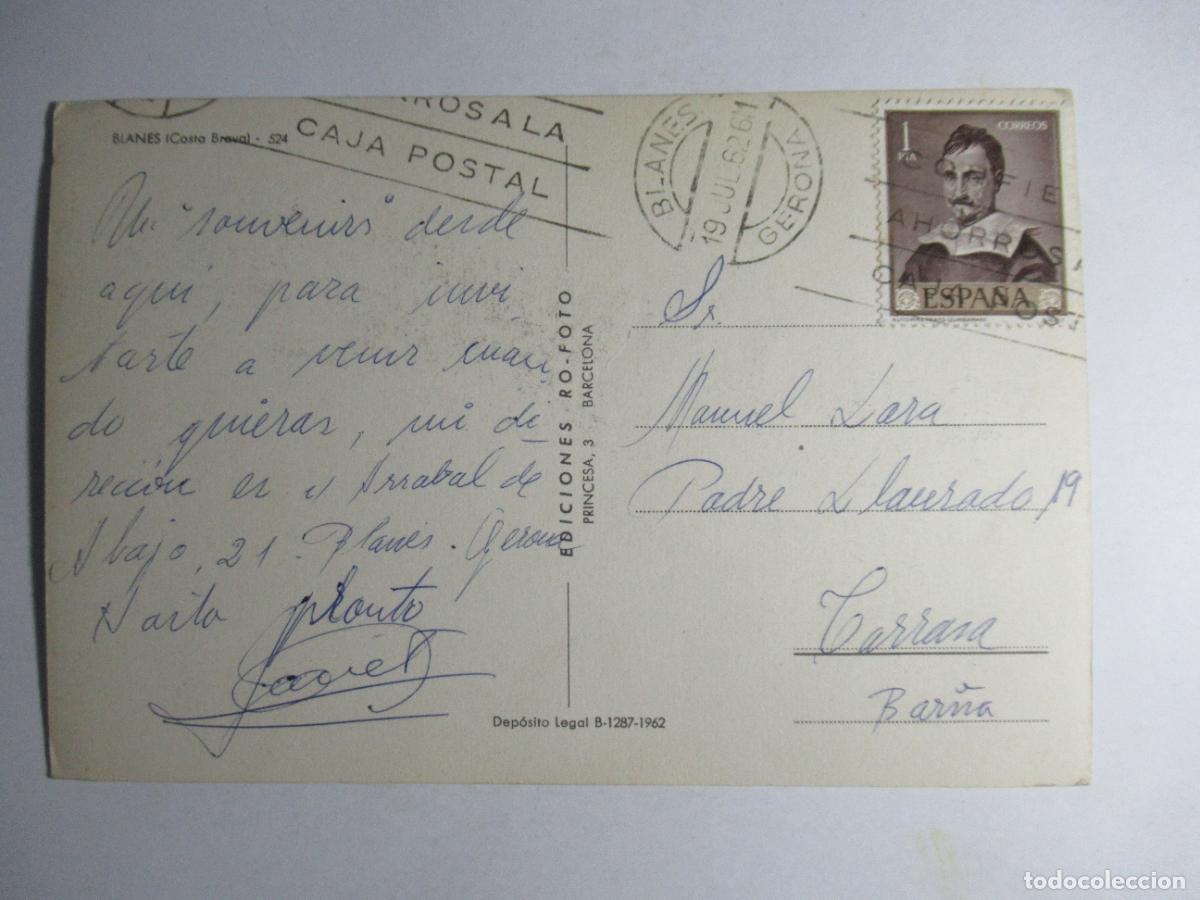 BLANES (Costa Brava) - 524
RROS A LA
CAJA POSTAL
BLANES
19 JUL 62
GERONA
1
PTA
CORREOS
CONFIE
AHORROS A
CAJA POS
ESPAÑA
Un "souvenirs" desde
aquí, para invi
tarte a venir cuan
do quieras, mi di
rección es c/ Arrabal de
Abajo, 21. Blanes. Gerona
Hasta pronto
EDICIONES RO-FOTO
PRINCESA, 3 BARCELONA
Sr.
Manuel Lara
Padre Llaurado 19
Tarrasa
Barña
Depósito Legal B-1287-1962
todocoleccion